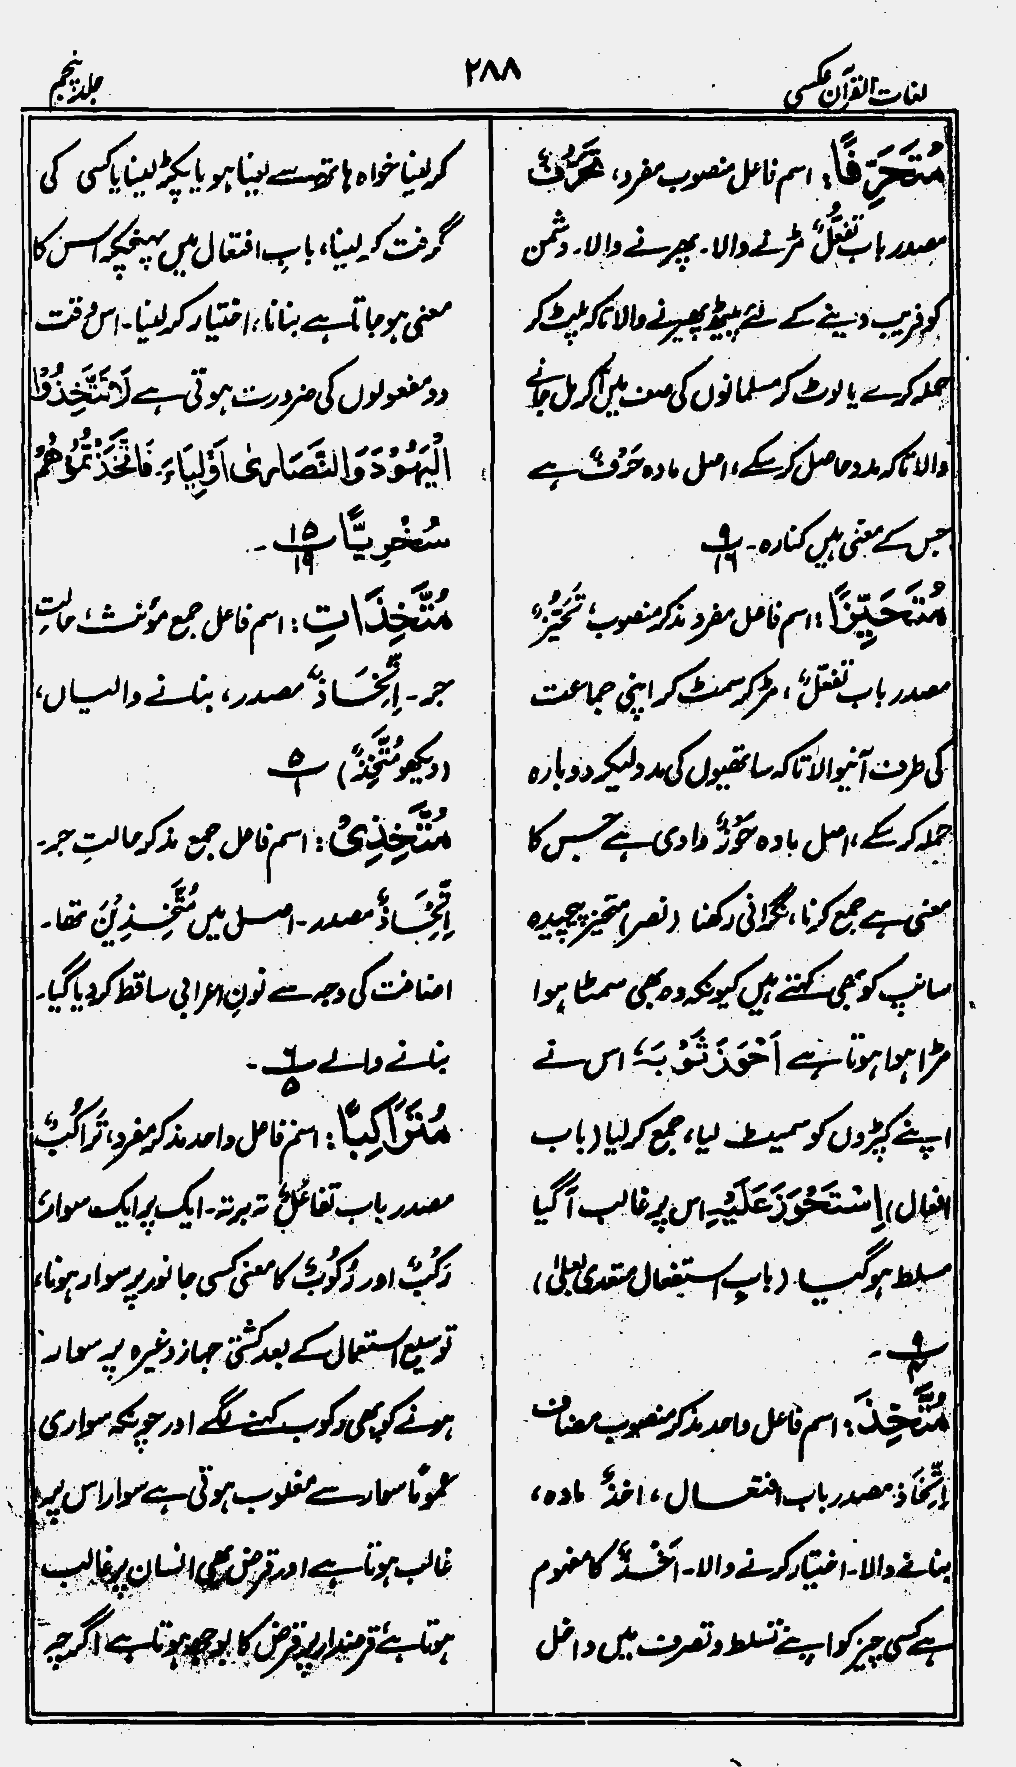 لغات القرآن عکسی
۲۸۸
جلد پنجم
مُتَحَرِّفًا: اسم فاعل منصوب مفرد، تَحَرُّفٌ
مصدر باب تفعّلٌ مڑنے والا۔ پھرنے والا۔ دشمن
کو فریب دینے کے لئے پیٹھ پھیرنے والا تاکہ پلٹ کر
حملہ کرے یا لوٹ کر مسلمانوں کی صف میں آکر مل جانے
والا تاکہ مدد حاصل کرسکے، اصل مادہ حَرْفٌ ہے
جس کے معنی ہیں کنارہ۔ ۹/۱۶
مُتَحَیِّزًا: اسم فاعل مفرد مذکر منصوب، تَحَیُّزٌ
مصدر باب تَفَعُّلٌ، مڑ کر سمٹ کر اپنی جماعت
کی طرف آنیوالا تاکہ ساتھیوں کی مدد لیکر دوبارہ
حملہ کرسکے، اصل مادہ حَوْزٌ وادی ہے جس کا
معنی ہے جمع کرنا، نگرانی رکھنا (نصر) متحیز پیچیدہ
سانپ کو بھی کہتے ہیں کیونکہ وہ بھی سمٹا ہوا
مڑا ہوا ہوتا ہے اَحْوَذَ ثَوْبَہٗ اس نے
اپنے کپڑوں کو سمیٹ لیا، جمع کرلیا (باب
افعال) اِسْتَحْوَذَ عَلَیْہِ اس پر غالب آگیا
مسلط ہوگیا (باب استفعال متعدی بعلیٰ)
۹
مُتَّخِذَ: اسم فاعل واحد مذکر منصوب مضاف
اِتِّخَاذ مصدر باب افتعال، اخذٌ مادہ،
بنانے والا۔ اختیار کرنے والا۔ اَخْذٌ کا مفہوم
ہے کسی چیز کو اپنے تسلط و تصرف میں داخل
کرلینا خواہ ہاتھ سے لینا ہو یا پکڑ لینا یا کسی کی
گرفت کرلینا، بابِ افتعال میں پہنچکر اس کا
معنی ہوجاتا ہے بنانا، اختیار کرلینا۔ اس وقت
دو مفعولوں کی ضرورت ہوتی ہے لَا تَتَّخِذُوا
الْیَھُوْدَ وَالنَّصَارٰی اَوْلِیَاءَ، فَاتَّخَذْتُمُوْھُمْ
سُخْرِیًّا ۱۵/۱۹۔
مُتَّخِذَاتِ: اسم فاعل جمع مؤنث حالتِ
جر۔ اِتِّخَاذٌ مصدر، بنانے والیاں،
(دیکھو مُتَّخِذٌ) ۵/۱
مُتَّخِذِیْ: اسم فاعل جمع مذکر حالتِ جر۔
اِتِّخَاذٌ مصدر۔ اصل میں مُتَّخِذِیْنَ تھا۔
اضافت کی وجہ سے نونِ اعرابی ساقط کردیا گیا۔
بنانے والے ۶/۵۔
مُتَرَاکِبًا: اسم فاعل واحد مذکر مفرد، تَرَاکُبٌ
مصدر باب تفاعُلٌ تہ برتہ۔ ایک پر ایک سوار،
رَکْبٌ اور رُکُوْبٌ کا معنی کسی جانور پر سوار ہونا،
توسیع استعمال کے بعد کشتی جہاز وغیرہ پر سوار
ہونے کو بھی رکوب کہنے لگے اور چونکہ سواری
عموماً سوار سے مغلوب ہوتی ہے سوار اس پر
غالب ہوتا ہے اور قرض بھی انسان پر غالب
ہوتا ہے قرضدار پر قرض کا بوجھ ہوتا ہے اگرچہ